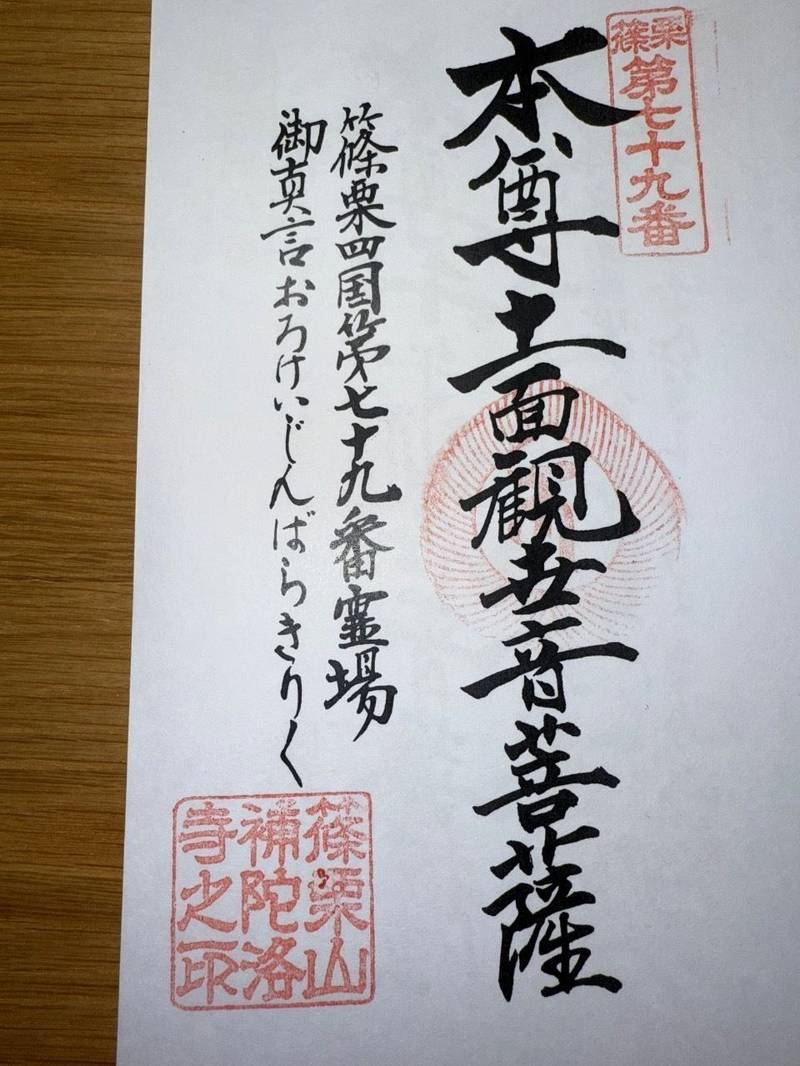 篠栗
第七十九番
本尊十一面観世音菩薩
篠栗四国第七十九番霊場
御真言おろけいじんばらきりく
篠栗山
補陀洛
寺之印